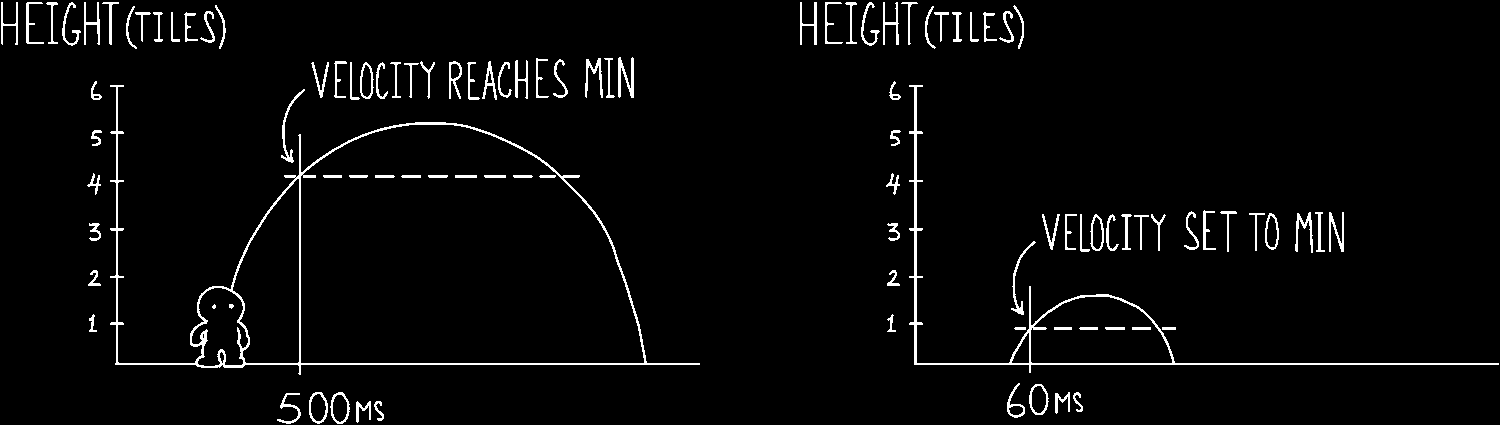 HEIGHT (TILES)
VELOCITY REACHES MIN
6
5
4
3
2
1
500MS
HEIGHT (TILES)
6
5
4
3
2
1
VELOCITY SET TO MIN
60MS